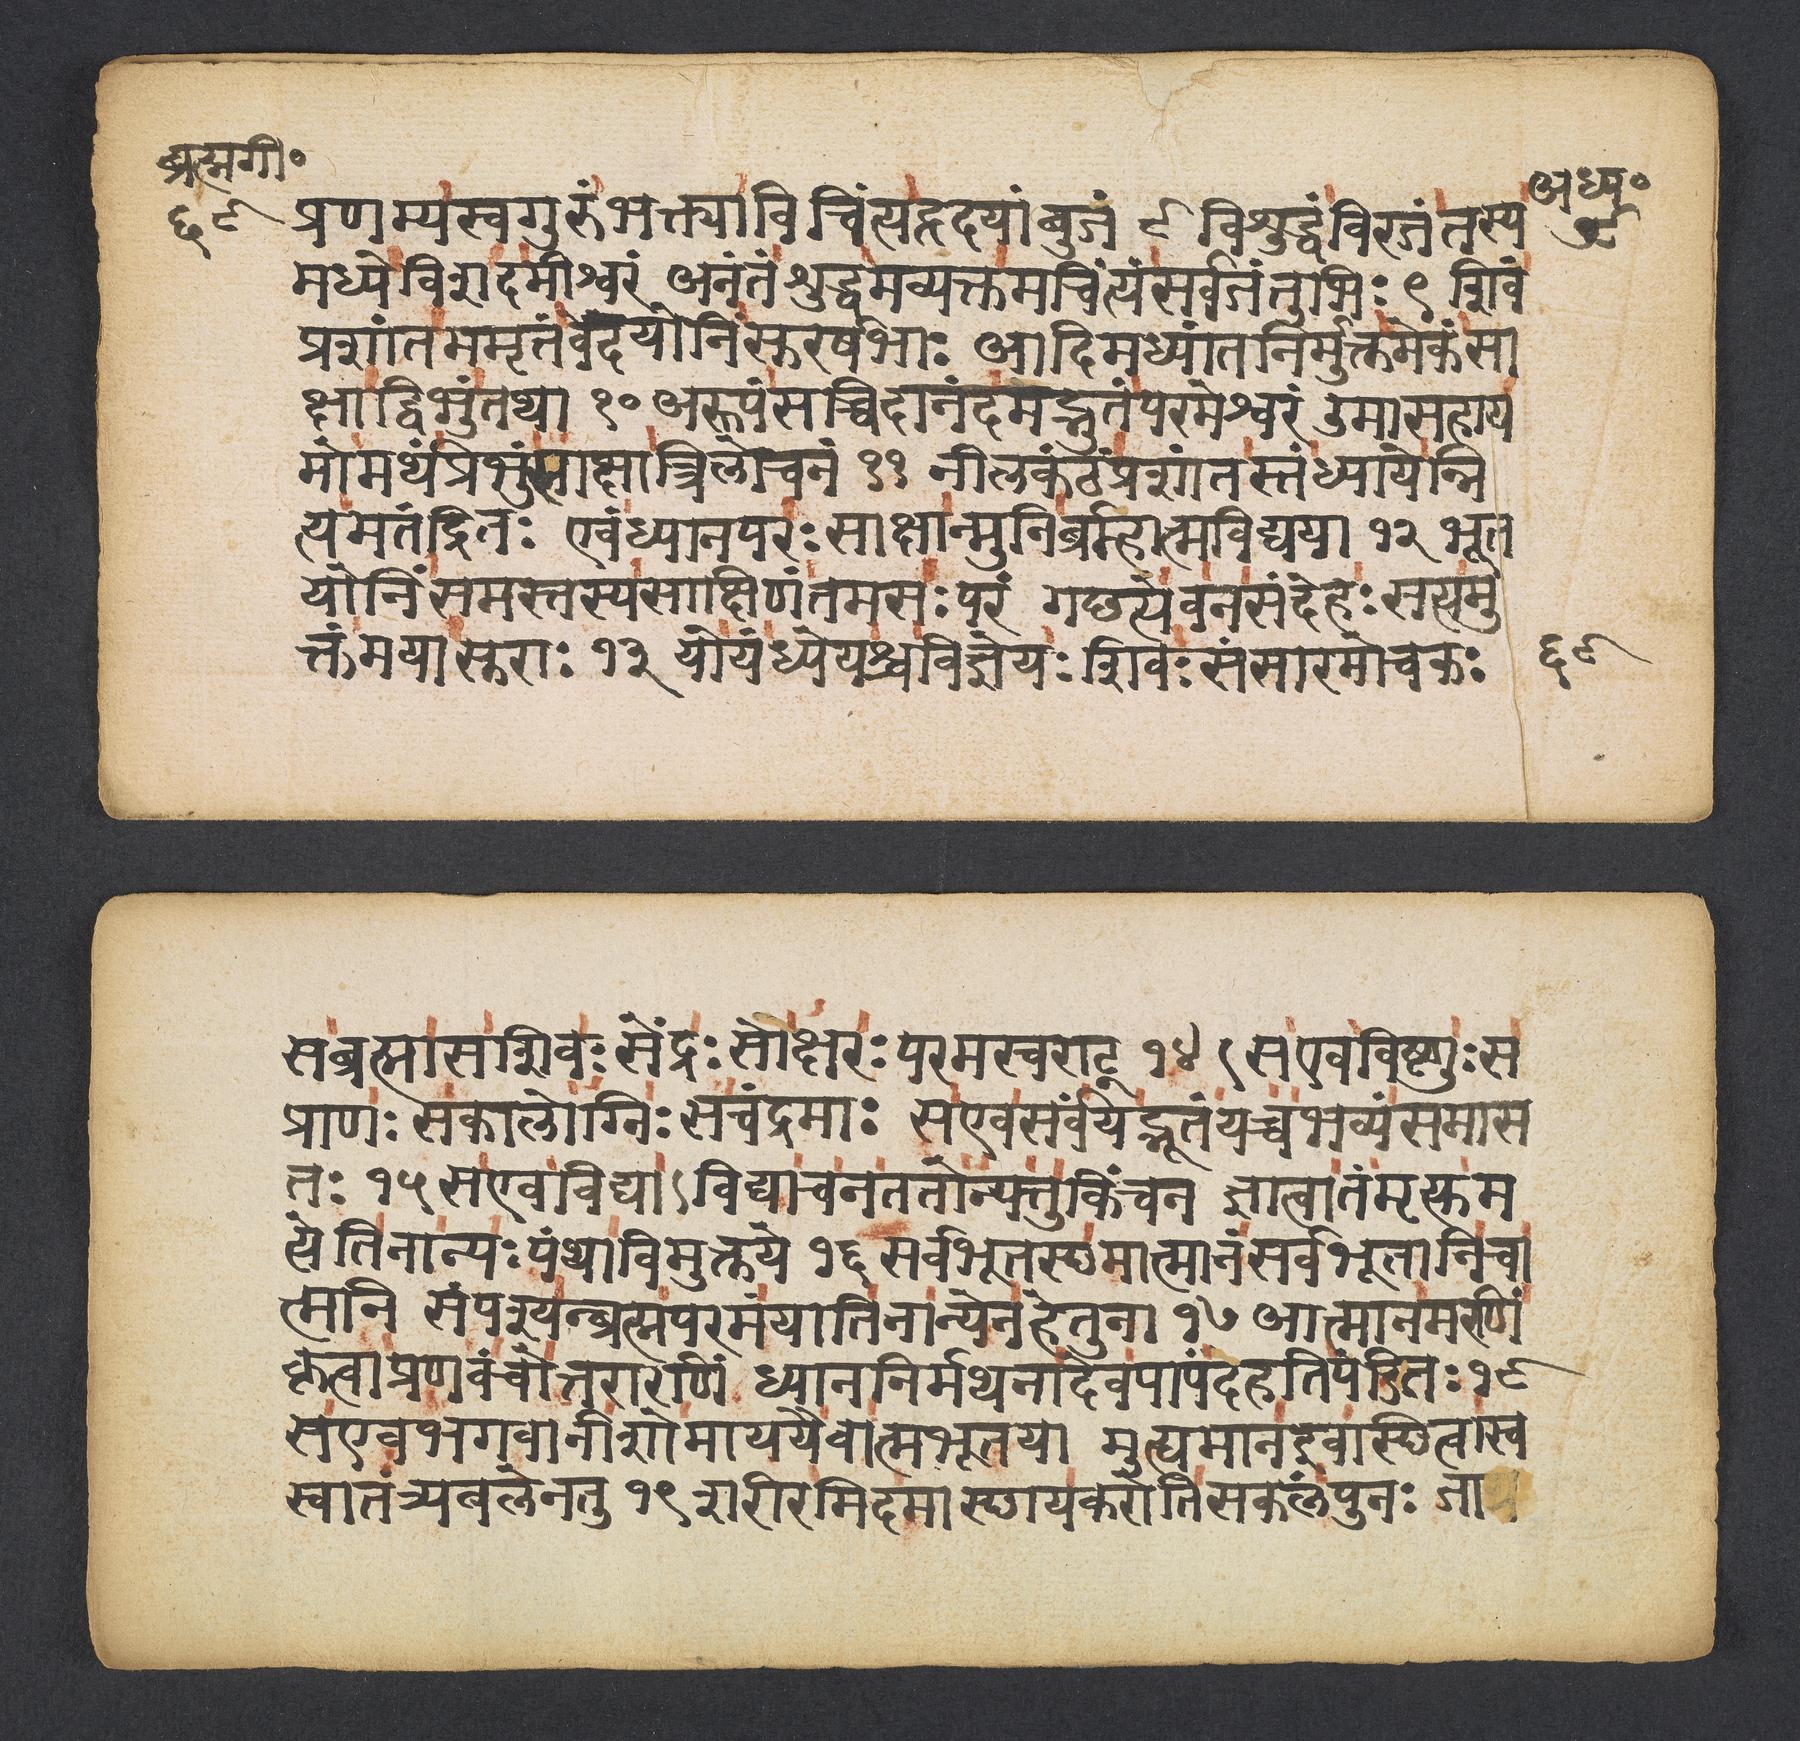 ब्रह्मगी॰
अध्य॰
६८
८
प्रणम्यस्वगुरुंभक्त्याविचिंत्यहृदयांबुजं ८ विशुद्धंविरजंतस्य
मध्येविशदमीश्वरं अनंतंशुद्धमव्यक्तमचिंत्यंसर्वजंतुभिः ९ शिवं
प्रशांतममृतंवेदयोनिंसुरर्षभाः आदिमध्यांतनिर्मुक्तमेकंसा
क्षाद्विभुंतथा १० अरूपंसच्चिदानंदमद्भुतंपरमेश्वरं उमासहाय
मोमर्थंप्रभुंसाक्षात्त्रिलोचनं ११ नीलकंठंप्रशांतस्तंध्यायेन्नि
त्यमतंद्रितः एवंध्यानपरःसाक्षान्मुनिर्ब्रम्हात्मविद्यया १२ भूत
योनिंसमस्तस्यसाक्षिणंतमसःपरं गच्छत्येवनसंदेहःसत्यमु
क्तंमयासुराः १३ योयंध्येयश्चविज्ञेयःशिवःसंसारमोचकः
६८
सब्रह्मासशिवःसेंद्रःसोक्षरःपरमस्वराट् १४ सएवविष्णुःस
प्राणःसकालोग्निःसचंद्रमाः सएवसर्वंयद्भूतंयच्चभव्यंसमास
तः १५ सएवविद्याऽविद्याचनततोन्यत्तुकिंचन ज्ञात्वातंमृत्युम
त्येतिनान्यःपंथाविमुक्तये १६ सर्वभूतस्थमात्मानंसर्वभूतानिचा
त्मनि संपश्यन्ब्रह्मपरमंयातिनान्येनहेतुना १७ आत्मानमरणिं
कृत्वाप्रणवंचोत्तरारणिं ध्याननिर्मथनादेवपापंदहतिपंडितः १८
सएवभगवानीशोमाययैवात्मभूतया मुह्यमानइवास्थित्वास्व
स्वातंत्र्यबलेनतु १९ शरीरमिदमास्थायकरोतिसकलंपुनः जा